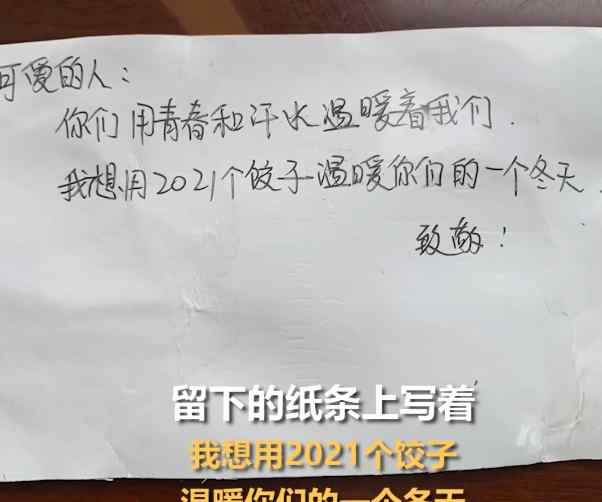 可爱的人：
你们用青春和汗水温暖着我们.
我想用2021个饺子温暖你们的一个冬天.
致敬！
留下的纸条上写着
我想用2021个饺子
温暖你们的一个冬天